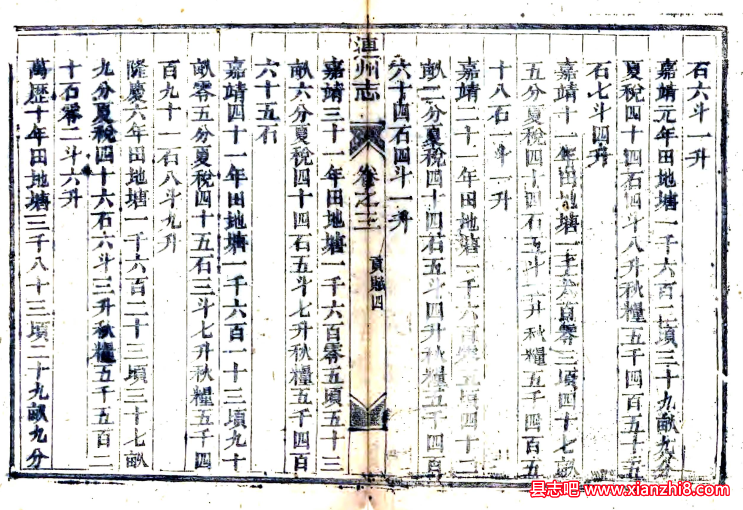 石六斗一升
嘉靖元年田地塘一千六百二頃三十九畝九分
夏稅四十四石四斗八升秋糧五千四百五十五
石七斗四升
嘉靖十一年田地塘一千六百零三頃四十七畝
五分夏稅四十四石五斗一升秋糧五千四百五
十八石一斗一升
嘉靖二十一年田地塘一千六百頃四十二
畝二分夏稅四十四石五斗四升秋糧五千四百
六十四石四斗一升
州志
卷之三
貢賦四
嘉靖三十一年田地塘一千六百零五頃五十三
畝六分夏稅四十四石五斗七升秋糧五千四百
六十五石
嘉靖四十一年田地塘一千六百一十三頃九十
畝零五分夏稅四十五石三斗七升秋糧五千四
百九十一石八斗九升
隆慶六年田地塘一千六百二十三頃三十七畝
九分夏稅四十六石六斗三升秋糧五千五百二
十石零二斗六升
萬歷十年田地塘三千八十三頃二十九畝九分
县志吧-www.xianzhi8.com